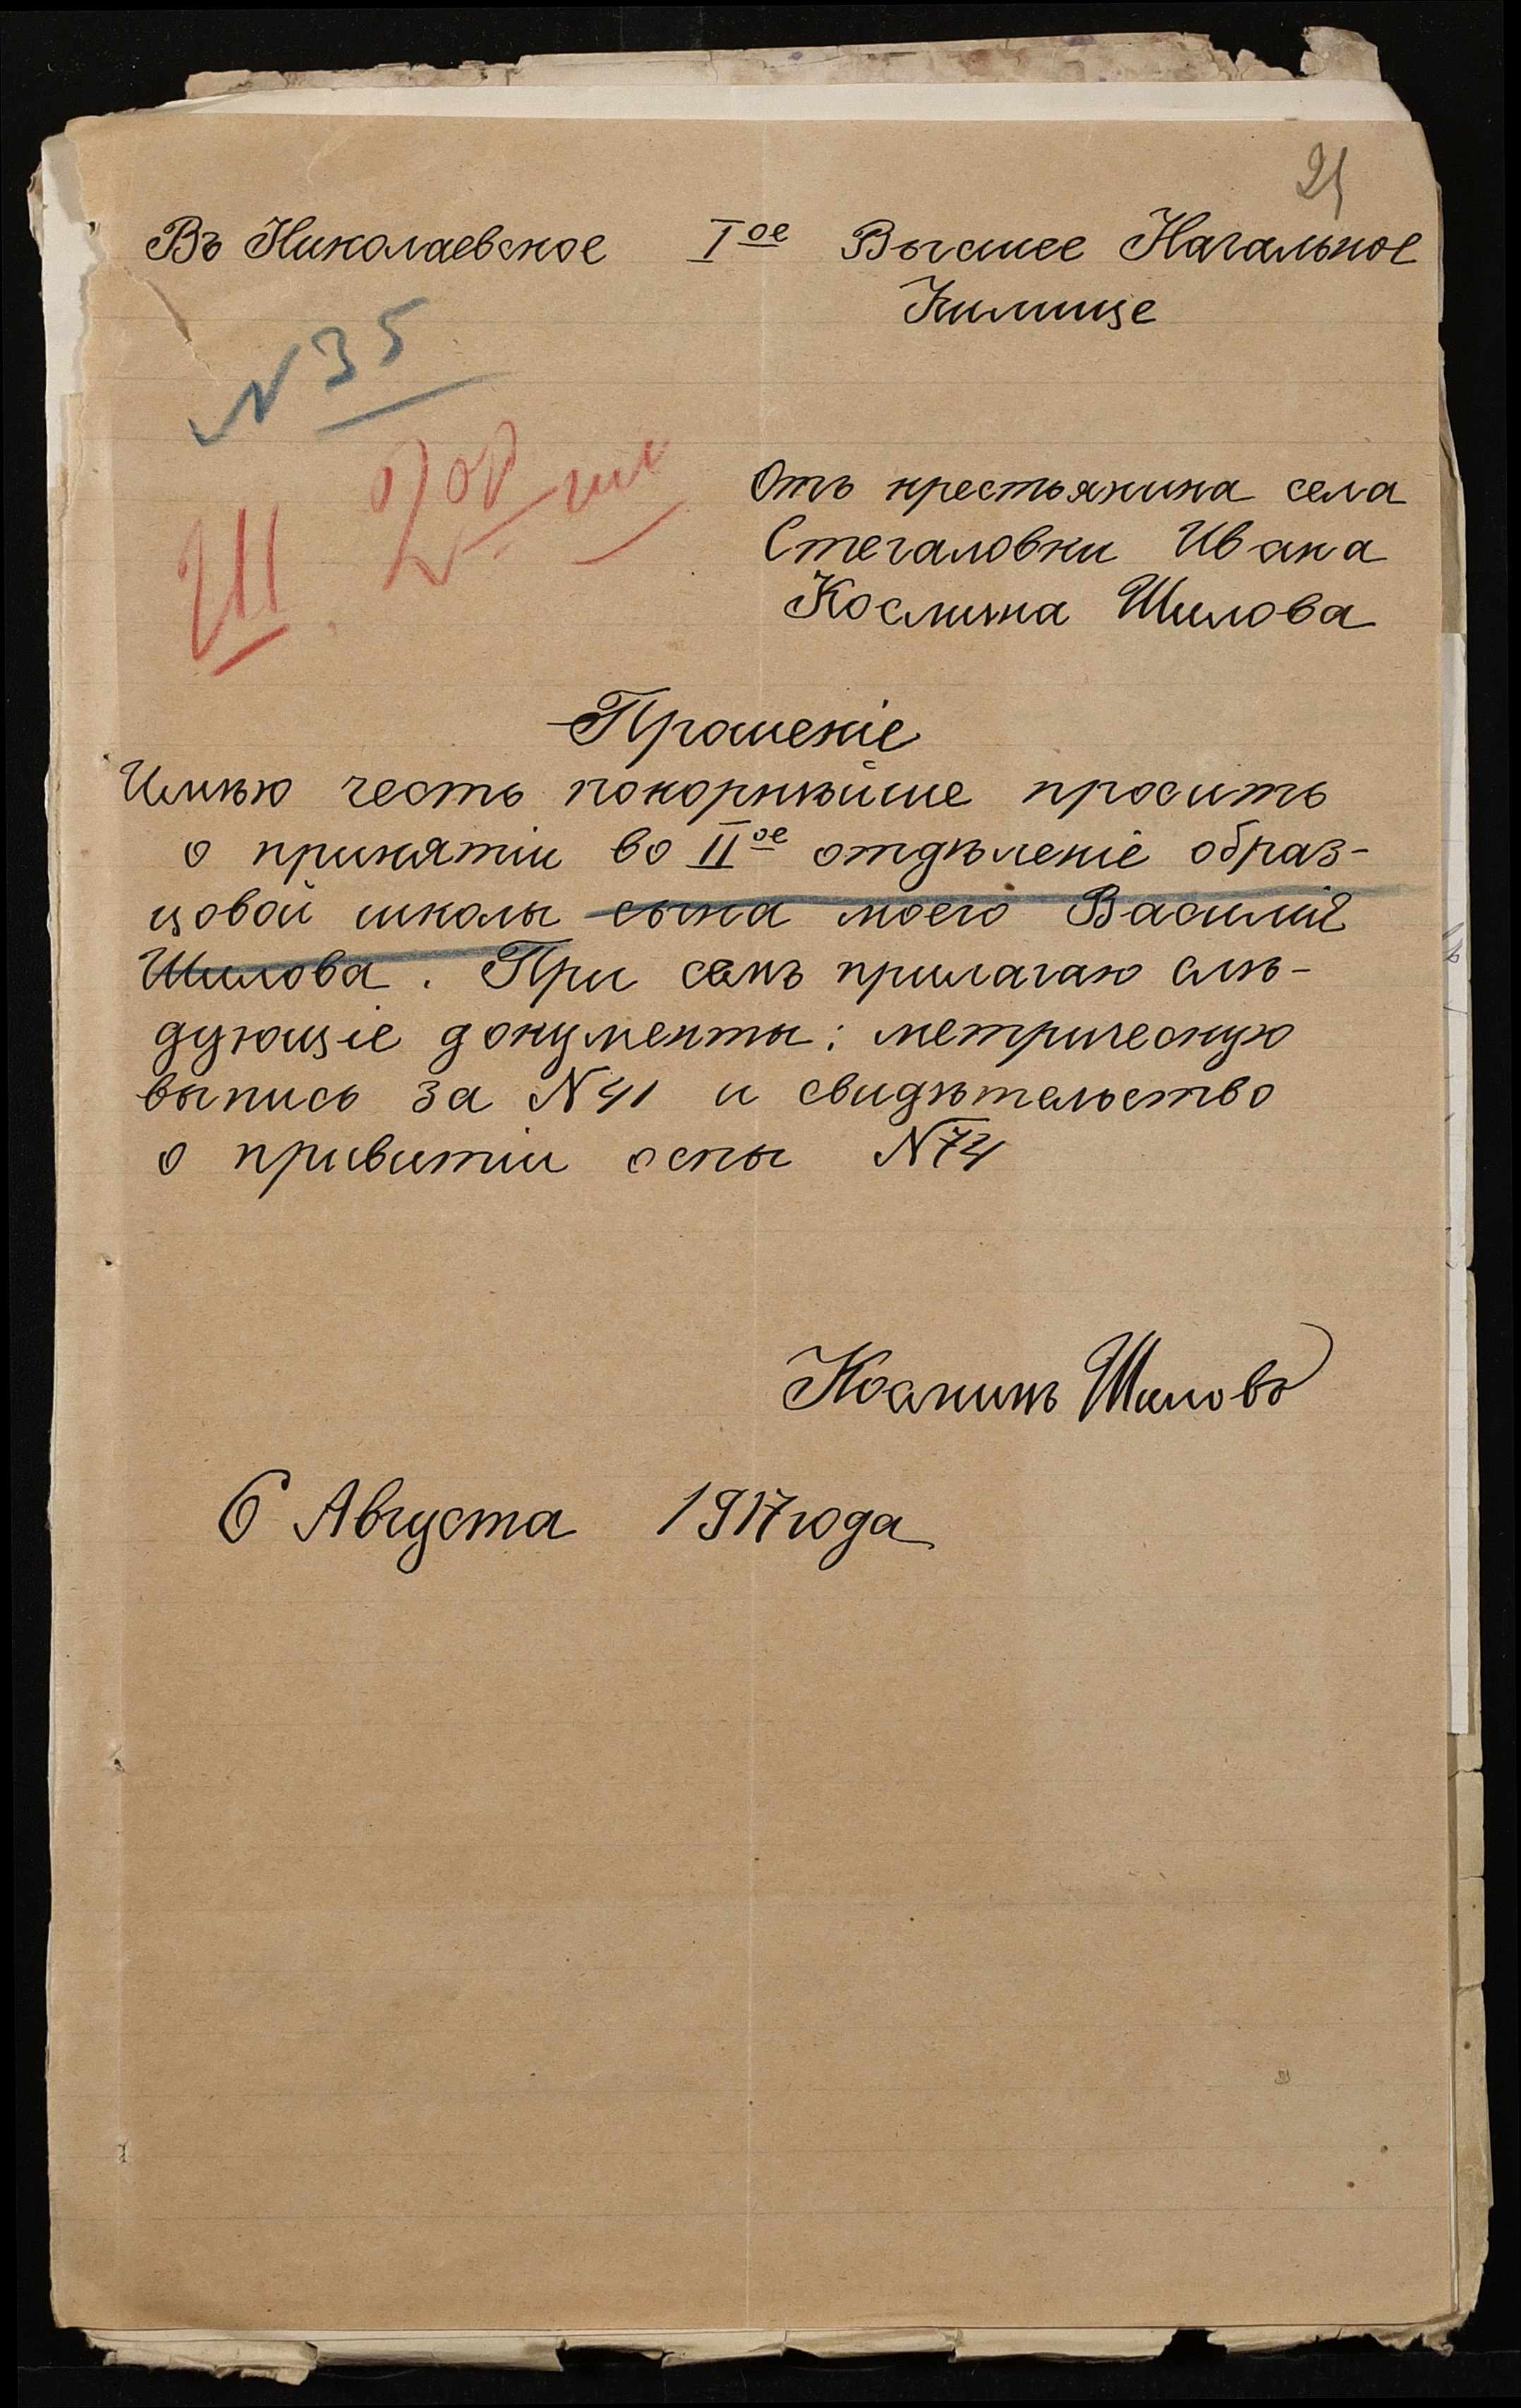 21
Въ Николаевское I ое Высшее Начальное
Училище
N 35
III
Отъ крестьянина села
Стегаловки Ивана
Косьмина Шилова
Прошеніе
Имѣю честь покорнѣйше просить
о принятіи во II ое отдѣленіе образ-
цовой школы сына моего Василія
Шилова. При семъ прилагаю слѣ-
дующіе документы: метрическую
выпись за N 41 и свидѣтельство
о привитіи оспы N 74
Шиловъ
6 Августа 1917 года